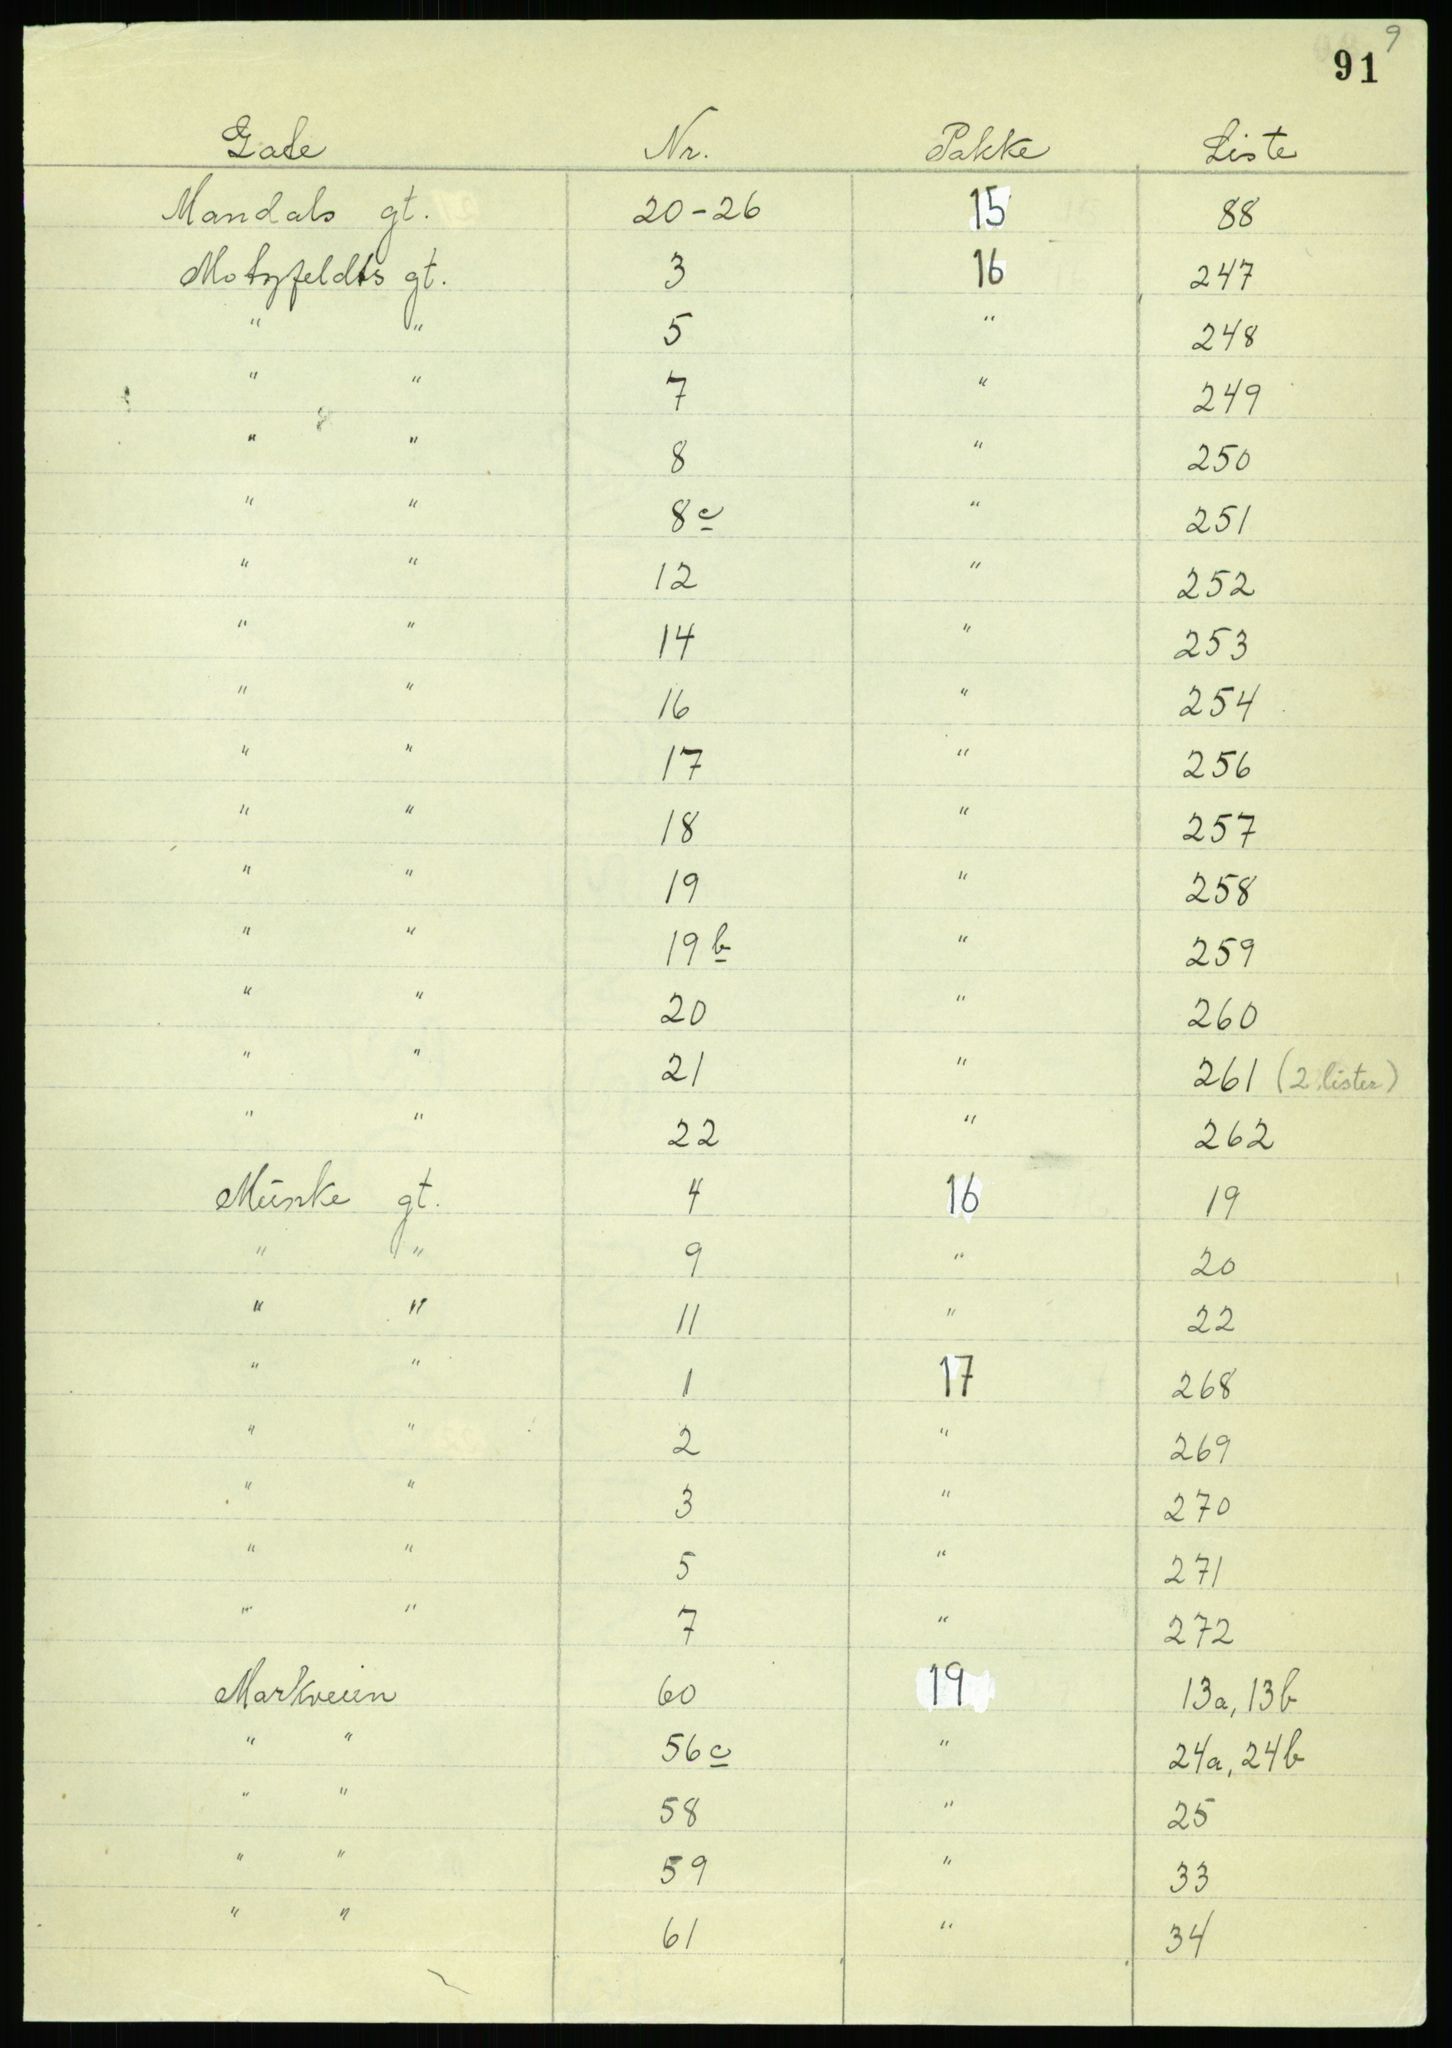 9
91
Gate Nr. Pakke Liste
Mandals gt. 20-26 15 88
Motzfeldts gt. 3 16 247
" " 5 " 248
" " 7 " 249
" " 8 " 250
" " 8c " 251
" " 12 " 252
" " 14 " 253
" " 16 " 254
" " 17 " 256
" " 18 " 257
" " 19 " 258
" " 19b " 259
" " 20 " 260
" " 21 " 261 (2 lister)
" " 22 " 262
Munke gt. 4 16 19
" " 9 " 20
" " 11 " 22
" " 1 17 268
" " 2 " 269
" " 3 " 270
" " 5 " 271
" " 7 " 272
Markveien 60 19 13a, 13b
" " 56c " 24a, 24b
" " 58 " 25
" " 59 " 33
" " 61 " 34